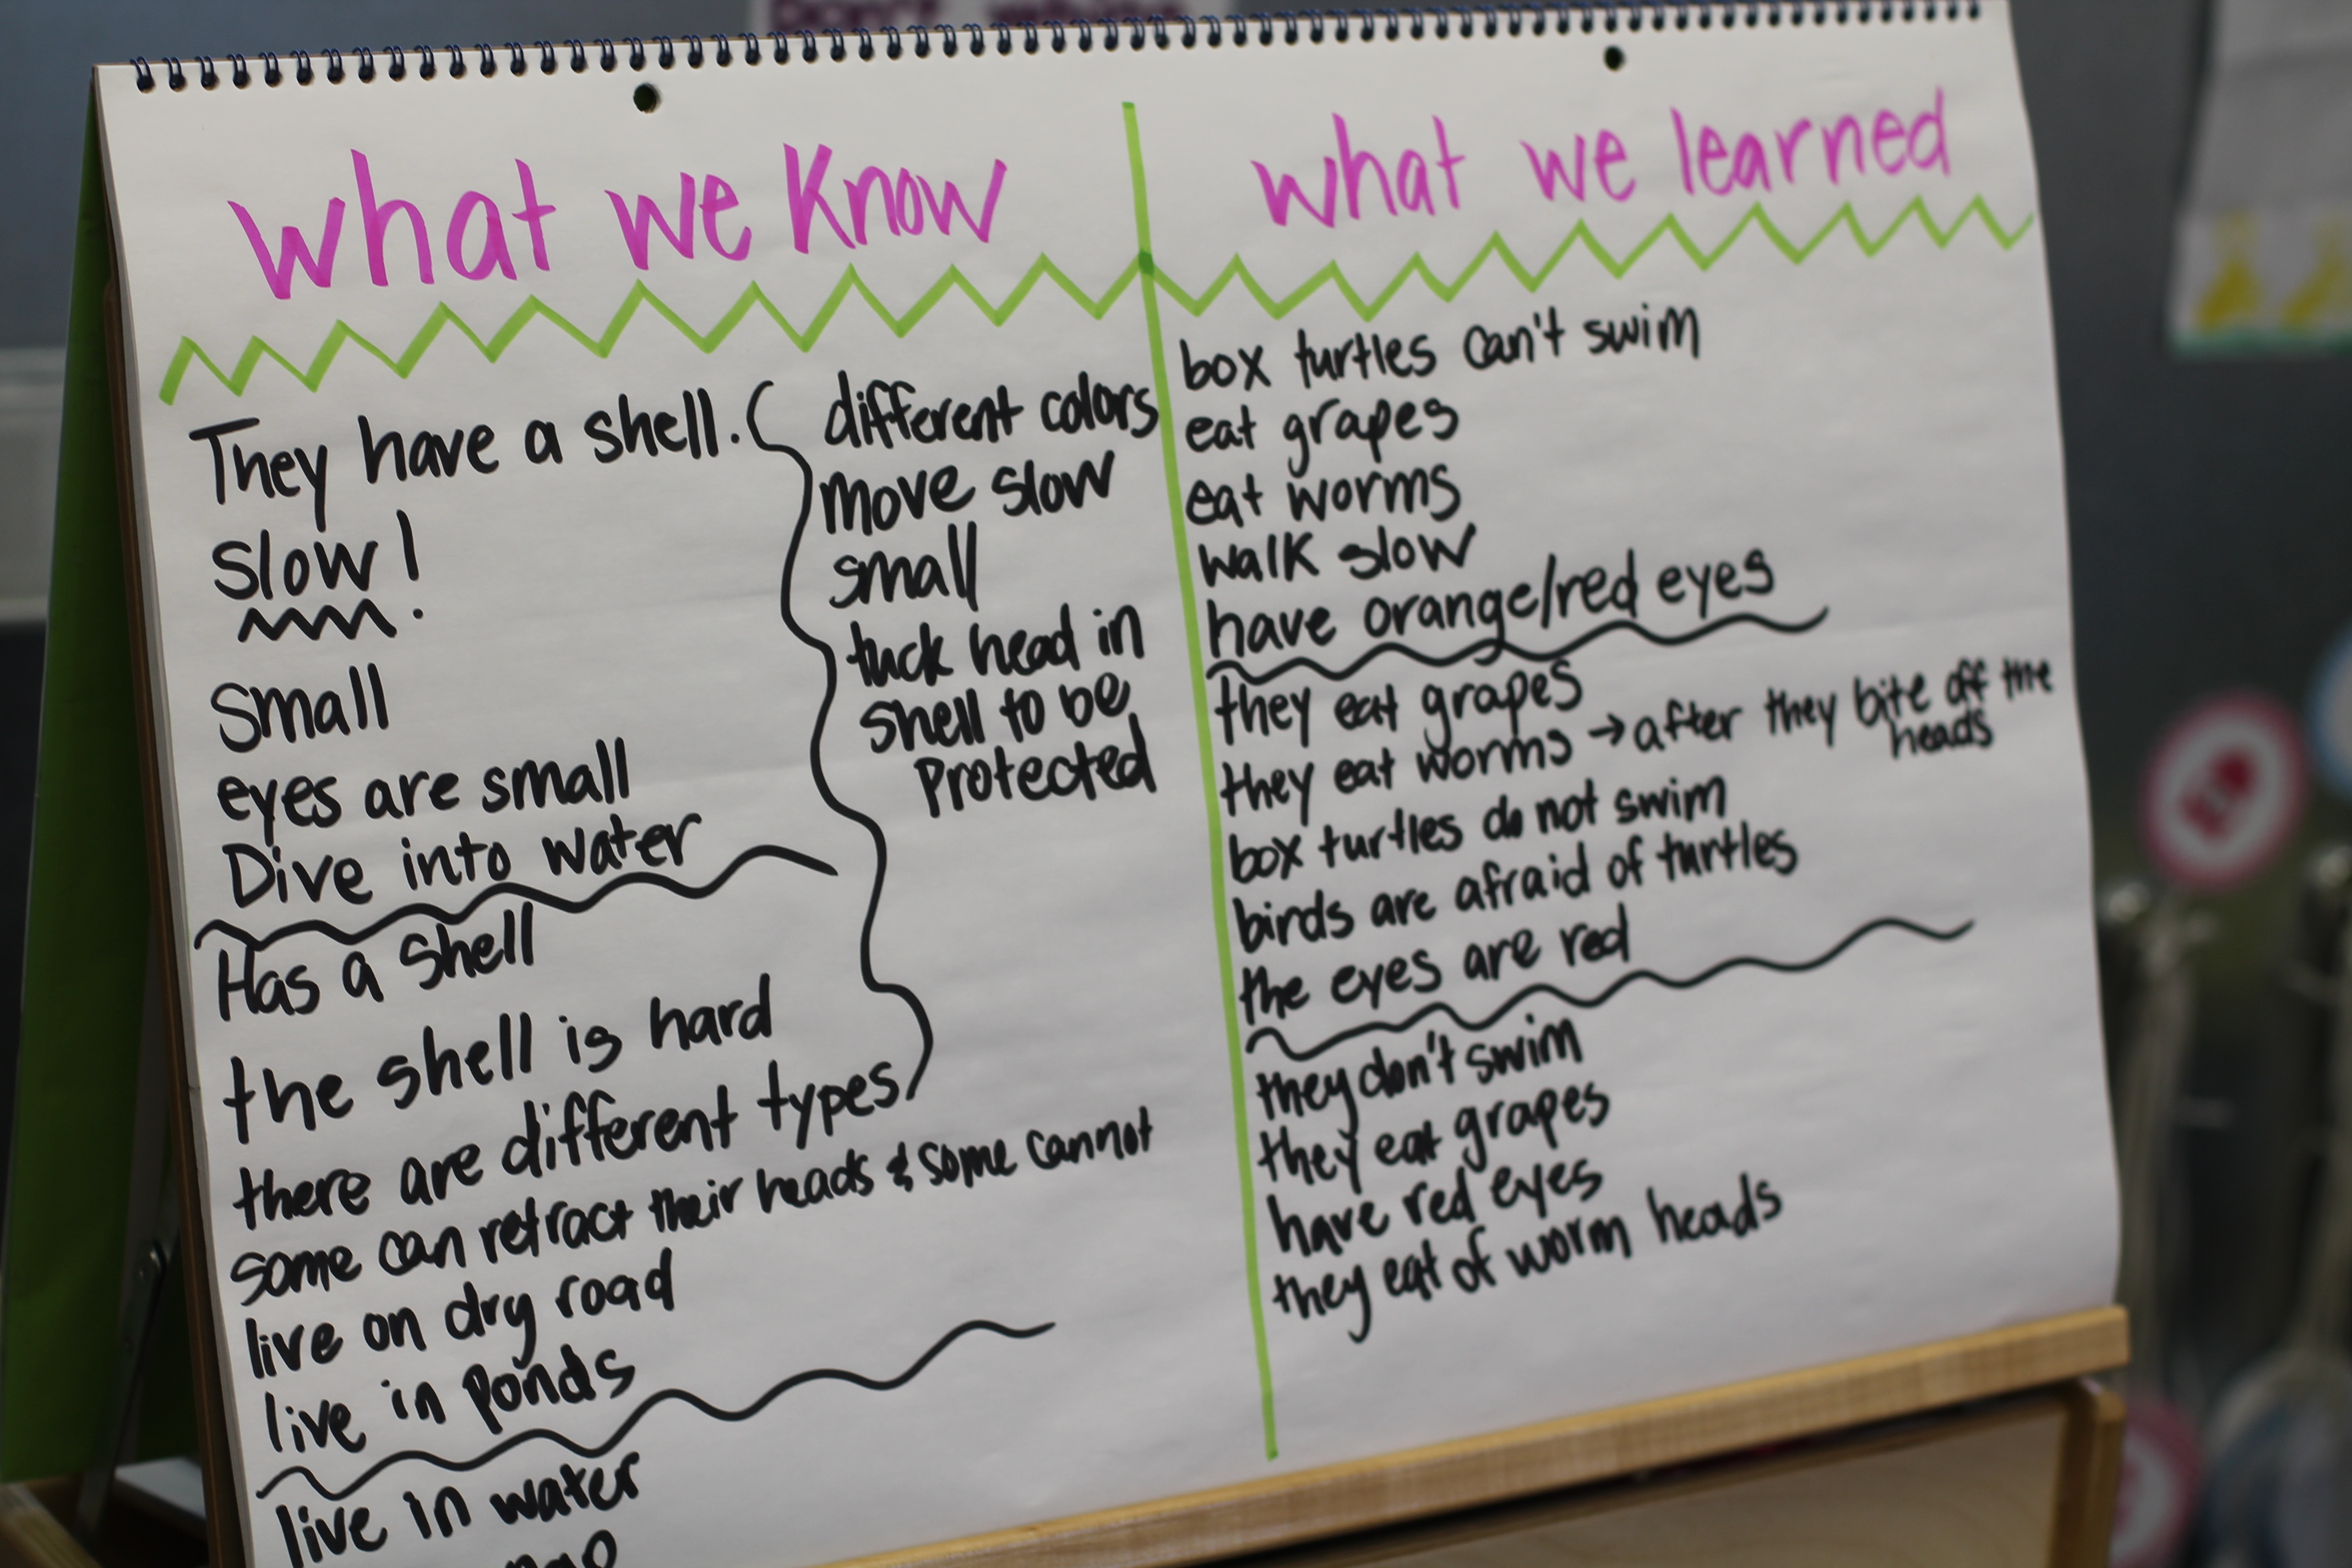 what we know
They have a shell.
slow!
small
eyes are small
Dive into water
Has a shell
the shell is hard
there are different types
some can retract their heads & some cannot
live on dry road
live in ponds
live in water
different colors
move slow
small
tuck head in
shell to be
protected
what we learned
box turtles can't swim
eat grapes
eat worms
walk slow
have orange/red eyes
they eat grapes
they eat worms → after they bite off the
heads
box turtles do not swim
birds are afraid of turtles
the eyes are red
they don't swim
they eat grapes
have red eyes
they eat of worm heads